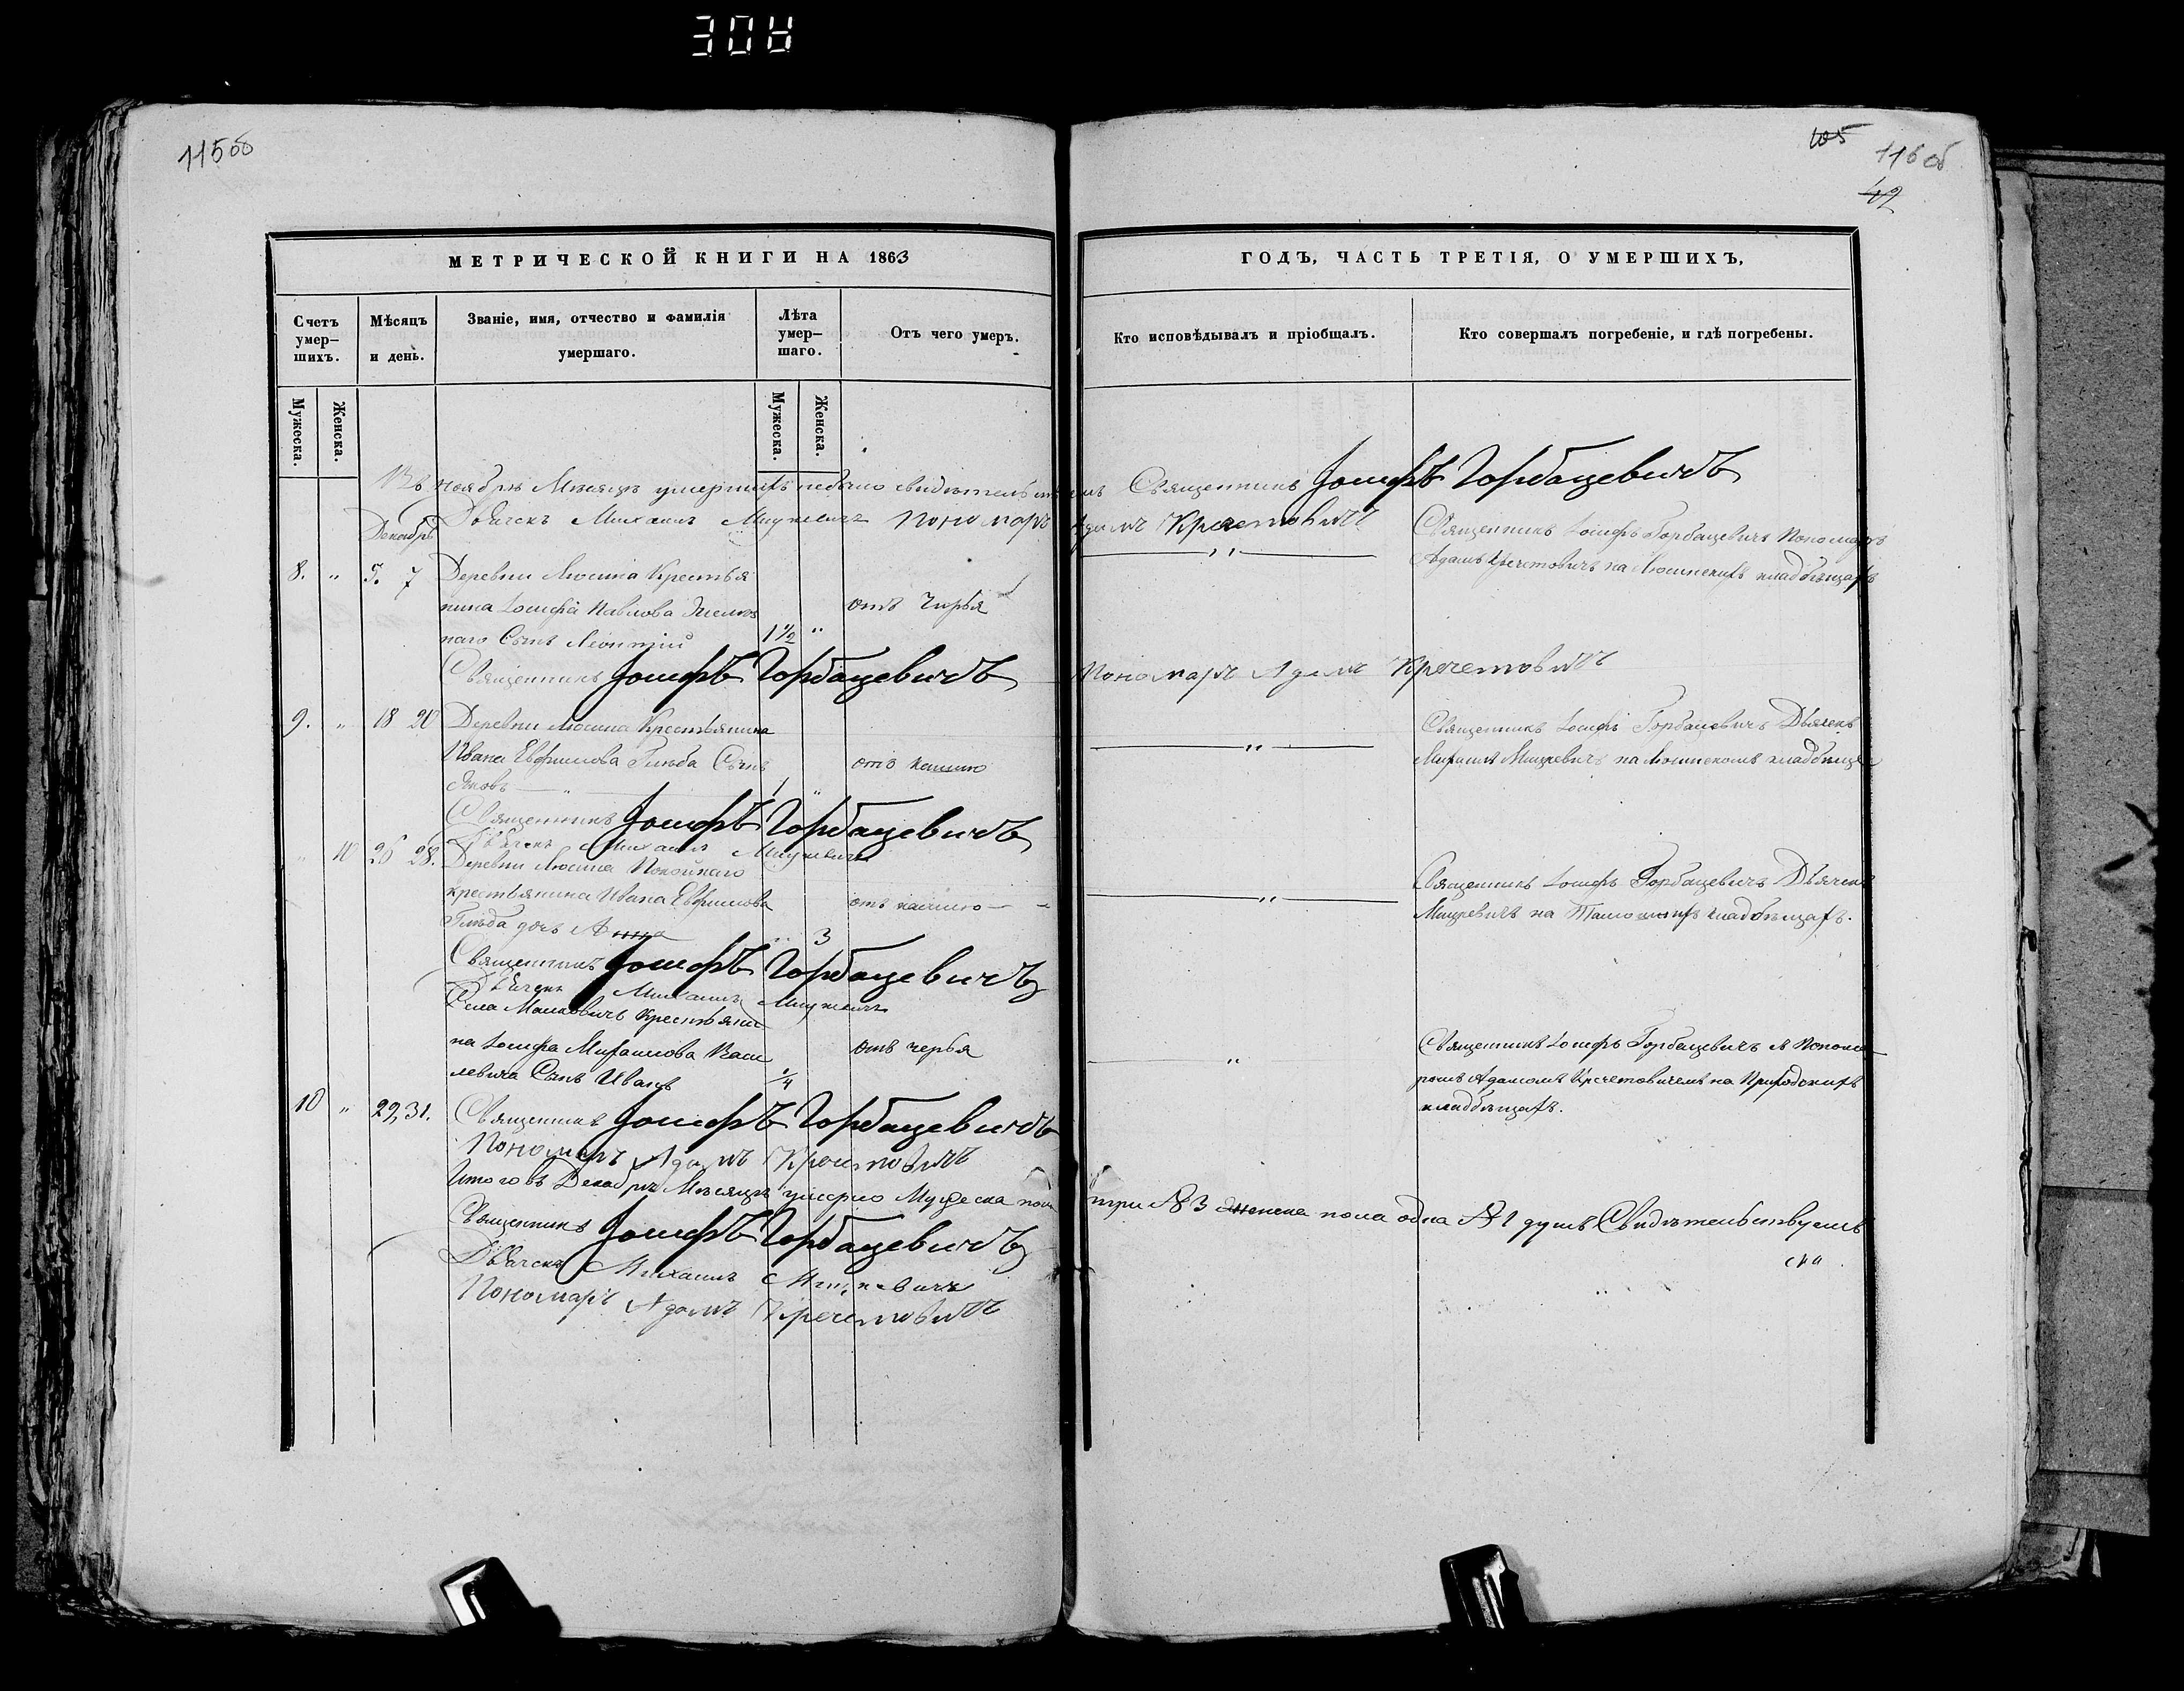 308
115об
105
116 об
42
МЕТРИЧЕСКОЙ КНИГИ НА 1863
ГОДЪ, ЧАСТЬ ТРЕТІЯ, О УМЕРШИХЪ,
Счетъ умер-шихъ.
Мѣсяцъ и день.
Званіе, имя, отчество и фамилія умершаго.
Лѣта умер-шаго.
Отъ чего умеръ.
Кто исповѣдывалъ и пріобщалъ.
Кто совершалъ погребеніе, и гдѣ погребены.
Мужеска.
Женска.
Мужеска.
Женска.
Въ ноябрѣ Мѣсяцѣ умершихъ небыло свидѣтельствуемъ Священникъ Іосифъ Горбацевичъ
Дьячекъ Михаилъ Мицкевичъ Пономарь Адамъ Кречетовичъ
Декабрь
8. " 5. 7 Деревни Люсина Крестья
нина Іосифа Павлова
наго Сынъ Леонтій
1 1/2 "
отъ Чирья
"
Священникъ Іосифъ Горбацевичъ Пономарь
Адамъ Кречетовичъ на Люсинскихъ кладбищахъ
Священникъ Іосифъ Горбацевичъ Пономарь Адамъ Кречетовичъ
9. " 18 20 Деревни Люсина Крестьянина
Ивана Евфимова Глѣба Сынъ
Яковъ 1 "
отъ кашлю
"
Священникъ Іосифъ Горбацевичъ Дьячекъ
Михаилъ Мицкевичъ на Люсинскомъ кладбище
Священникъ Іосифъ Горбацевичъ
Дьячекъ Михаилъ Мицкевичъ
" 4 26 28. Деревни Люсина Покойнаго
крестьянина Ивана Евфимова
Глѣба дочь Анна " 3
отъ кашлю
"
Священникъ Іосифъ Горбацевичъ Дьячекъ
Мицкевичъ на кладбищахъ.
Священникъ Іосифъ Горбацевичъ
Дьячекъ Михаилъ Мицкевичъ
Села Малковичъ Крестьяни
на Іосифа Михаилова Васи
левича Сынъ Иванъ
1/4
отъ черья
"
Священникъ Іосифъ Горбацевичъ с Понома
ромъ Адамомъ Кречетовичемъ на Приходскихъ
кладбищахъ.
10 " 29, 31. Священникъ Іосифъ Горбацевичъ
Пономарь Адамъ Кречетовичъ
Итого въ Декабрѣ Мѣсяцѣ умерло Мужеска пола три № 3 женска пола одна № 1 душъ Свидѣтельствуемъ
Священникъ Іосифъ Горбацевичъ
Дьячекъ Михаилъ Мицкевичъ
Пономарь Адамъ Кречетовичъ